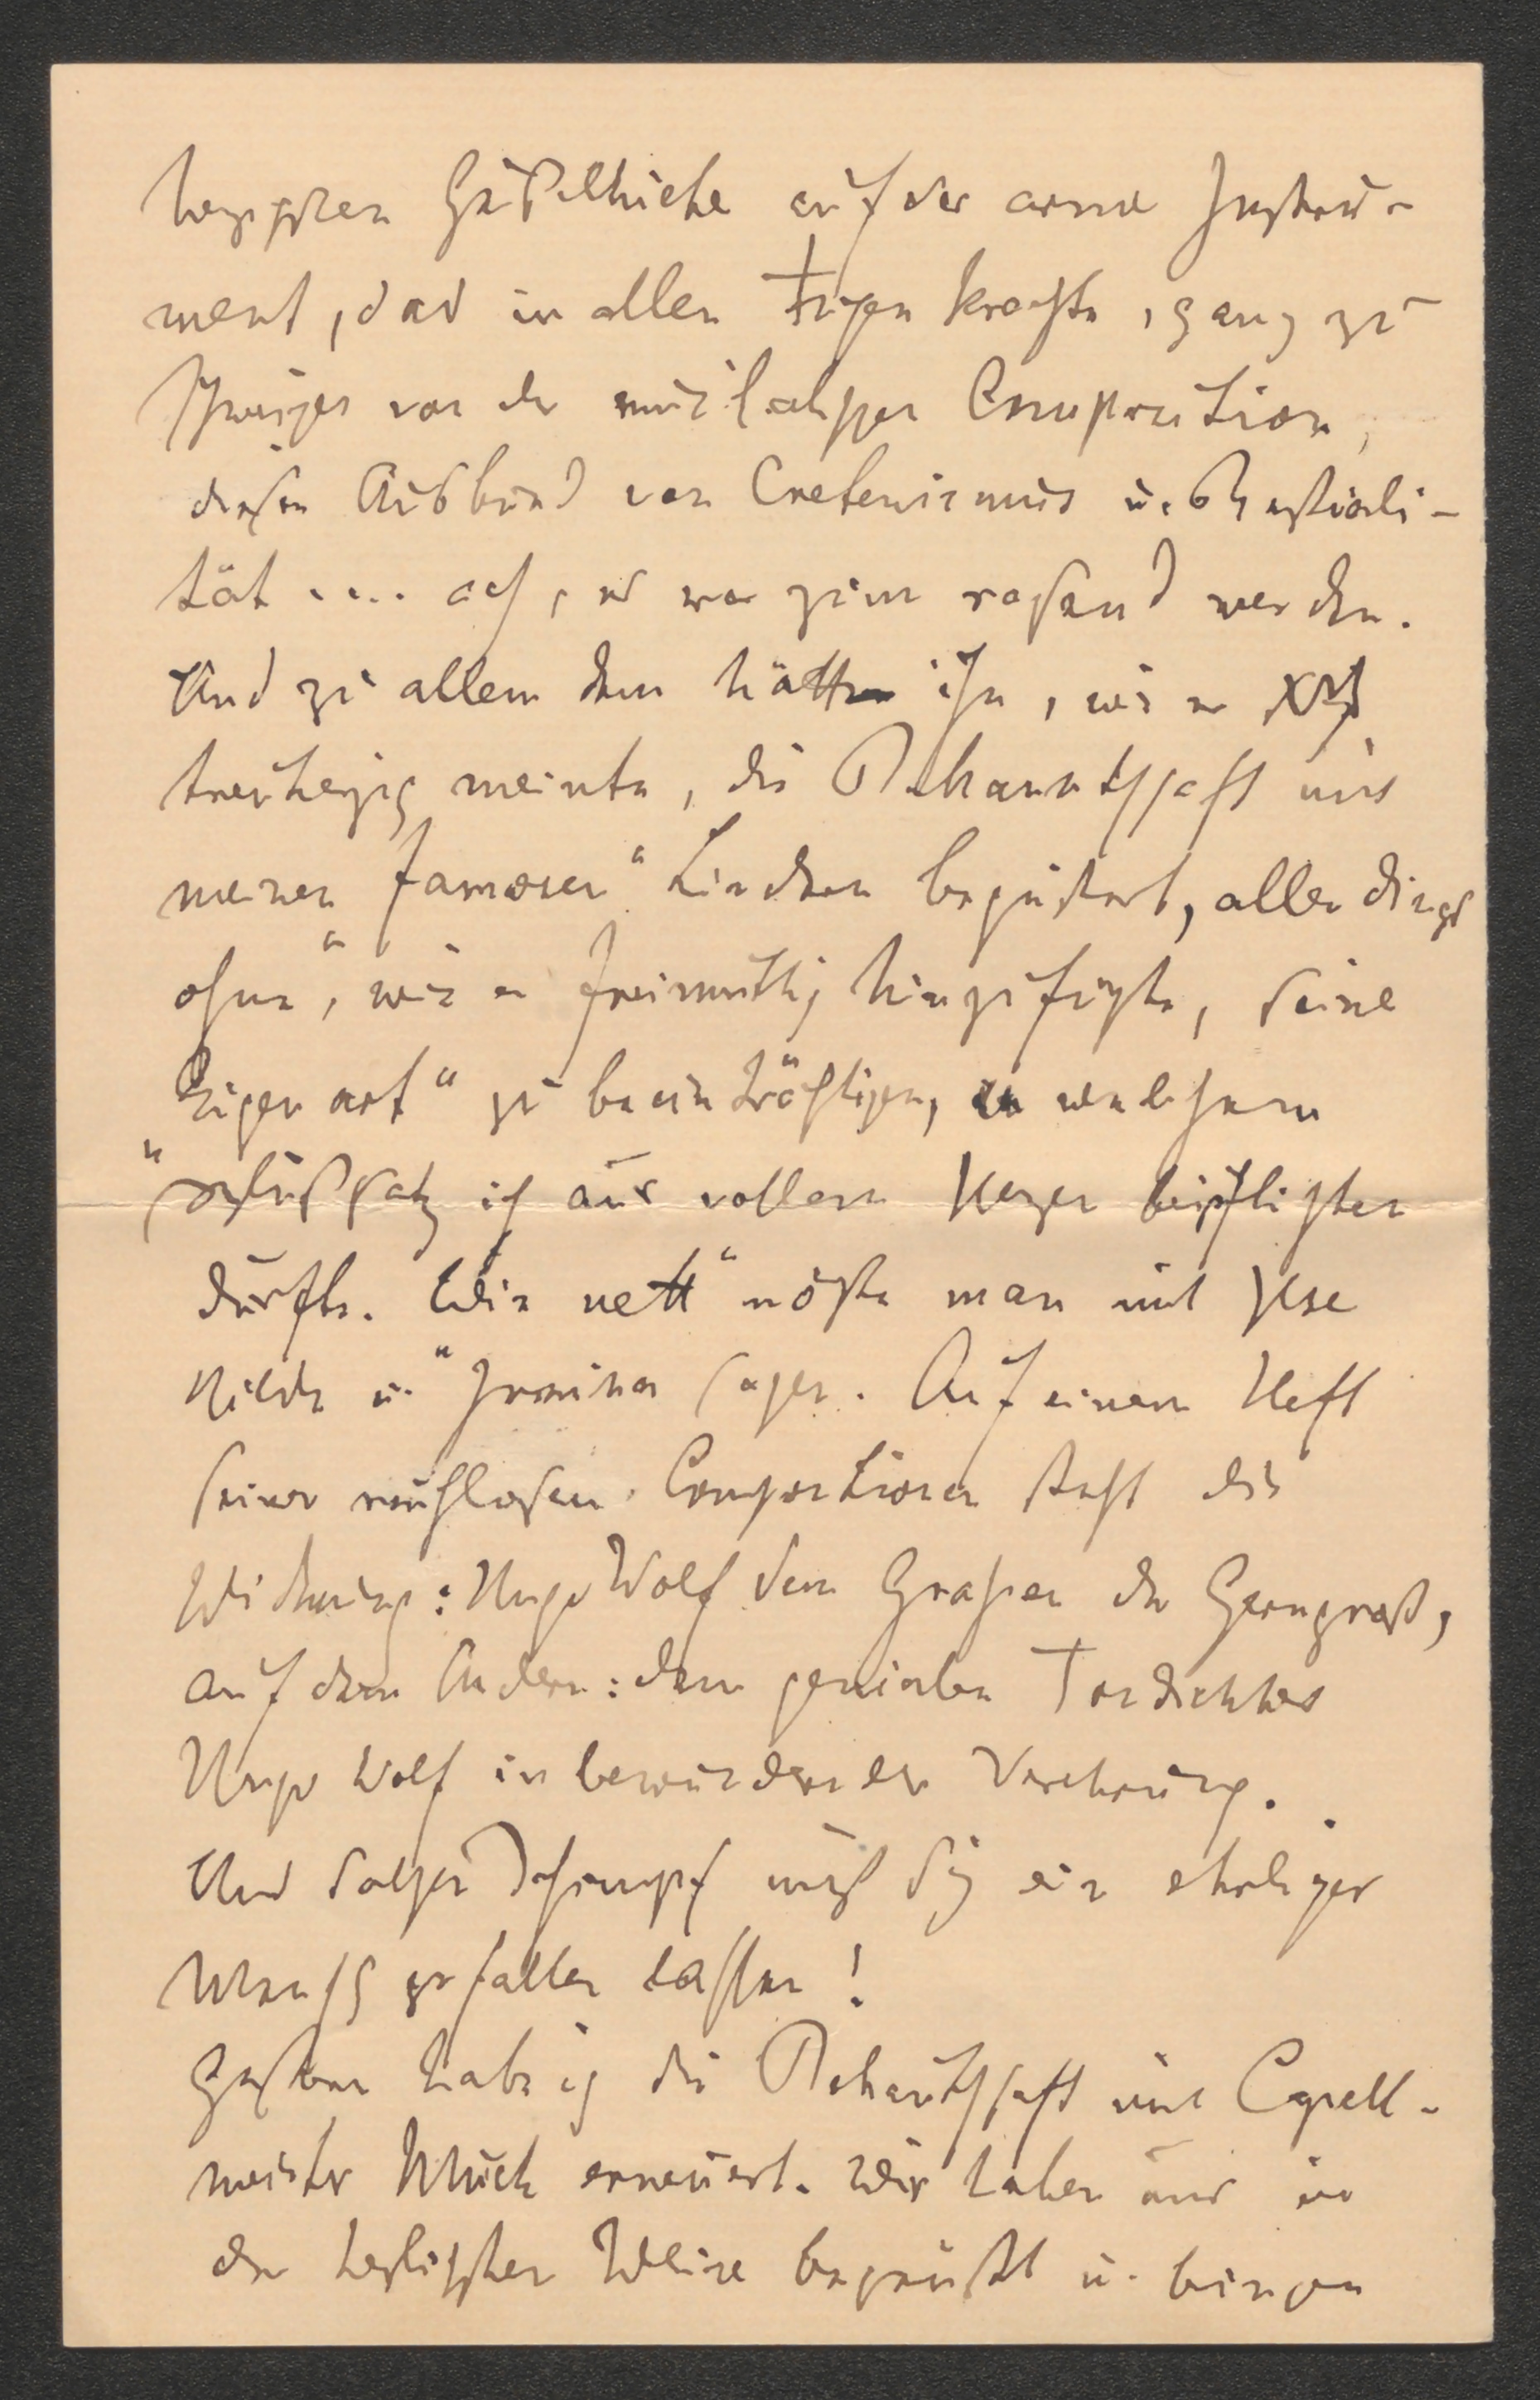 herzhaften Geißelhiebe auf das arme Instru-
ment, das in allen Fugen krachte, ganz zu
schweigen von der musikalischen Composition,
diesem Ausbund von Cretinismus u. Bestiali-
tät .... ach, es war zum rasend werden.
Und zu allem dem hätte ihn, wie er
treuherzig meinte, die Bekanntschaft mit
meinen „famosen“ Liedern begeistert, allerdings
ohne, wie er freimüthig hinzufügte, „seine
Eigenart“ zu beeinträchtigen, welchem
Schlußsatz ich aus vollem Herzen beipflichten
durfte. „Wie nett“ möchte man mit Ilse
Hilde u. Irmina sagen. Auf einem Heft
seiner ruchlosen Compositionen steht die
Widmung: Hugo Wolf dem Großen der Gerngroß,
auf dem Andern: dem genialen Tondichter
Hugo Wolf in bewundernder Verehrung.
Und solchen Schimpf muß sich ein ehrlicher
Mensch gefallen lassen!
Gestern habe ich die Bekantschaft mit Capell-
meister Muck erneuert. Wir haben uns in
der herzlichsten Weise begrüßt u. bin gen